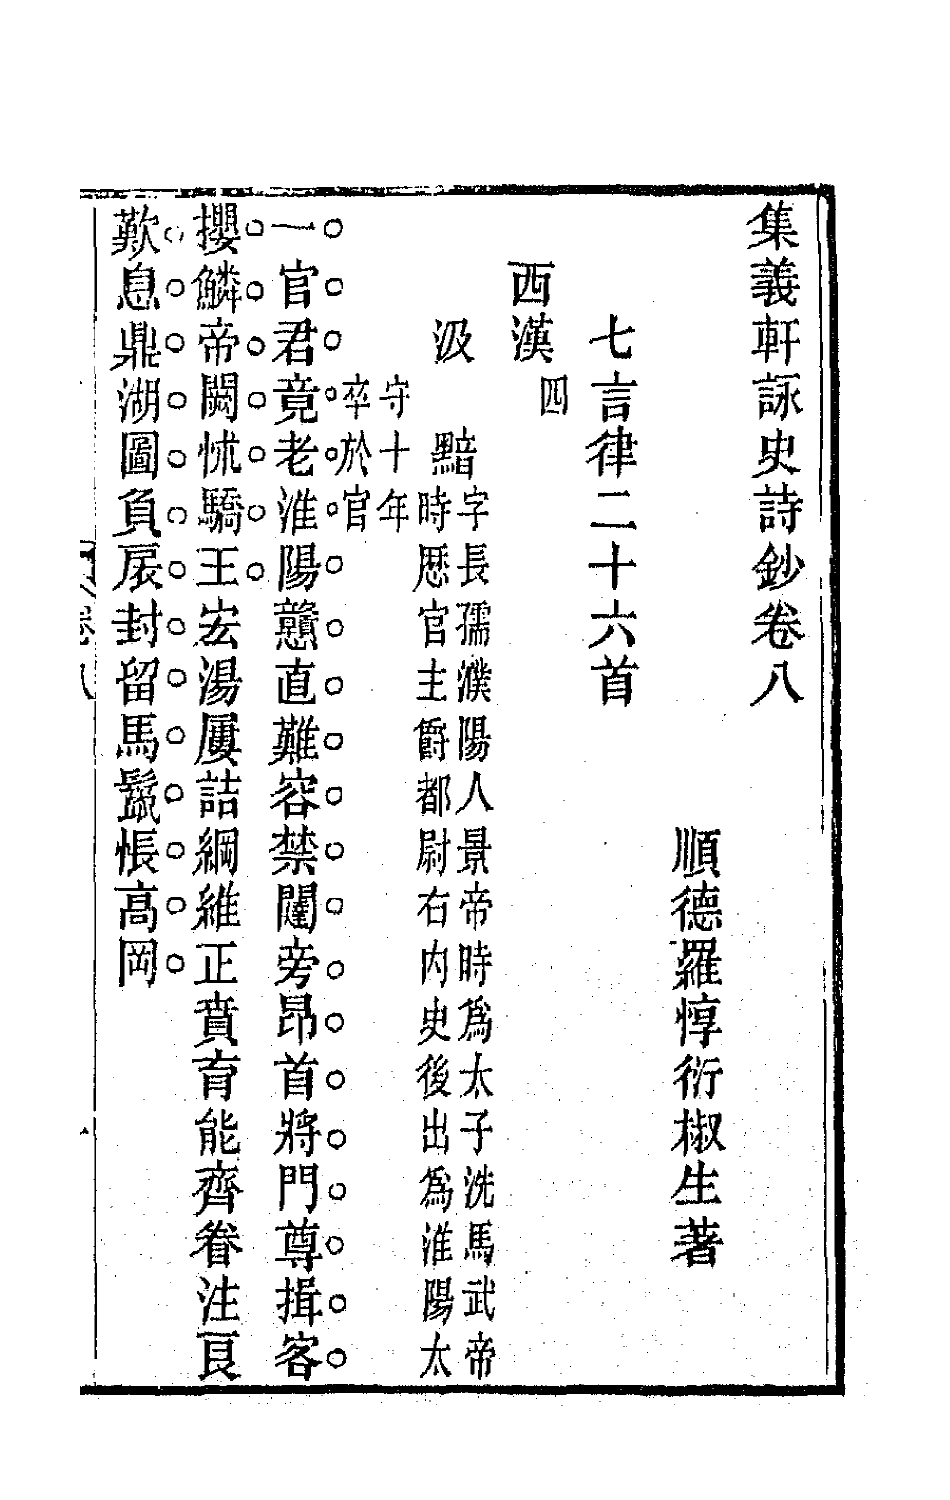 集義軒詠史詩鈔卷八
順德羅惇衍椒生著
七言律二十六首
西漢四
汲黯
字長孺濮陽人景帝時爲太子洗馬武帝
時歷官主爵都尉右內史後出爲淮陽太
守十年
卒於官
一官君竟老淮陽戇直難容禁闥旁昂首將門尊揖客
攖鱗帝闕怵驕王宏湯屢詰綱維正賁育能齊眷注長
歎息鼎湖圖負扆封留馬鬛悵高岡
卷八